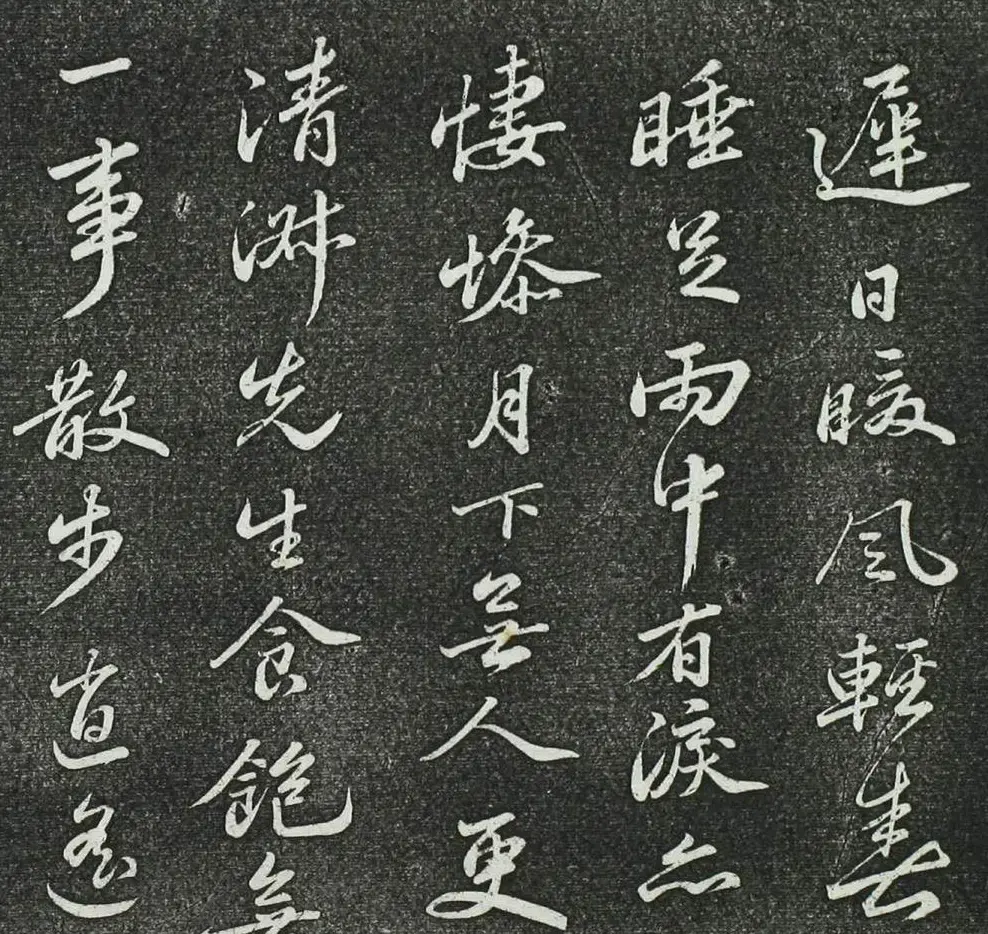 遲日暖風輕春
睡足雨中有淚亦
悽慘月下無人更
清淋先生食飽無
一事散步逍遙